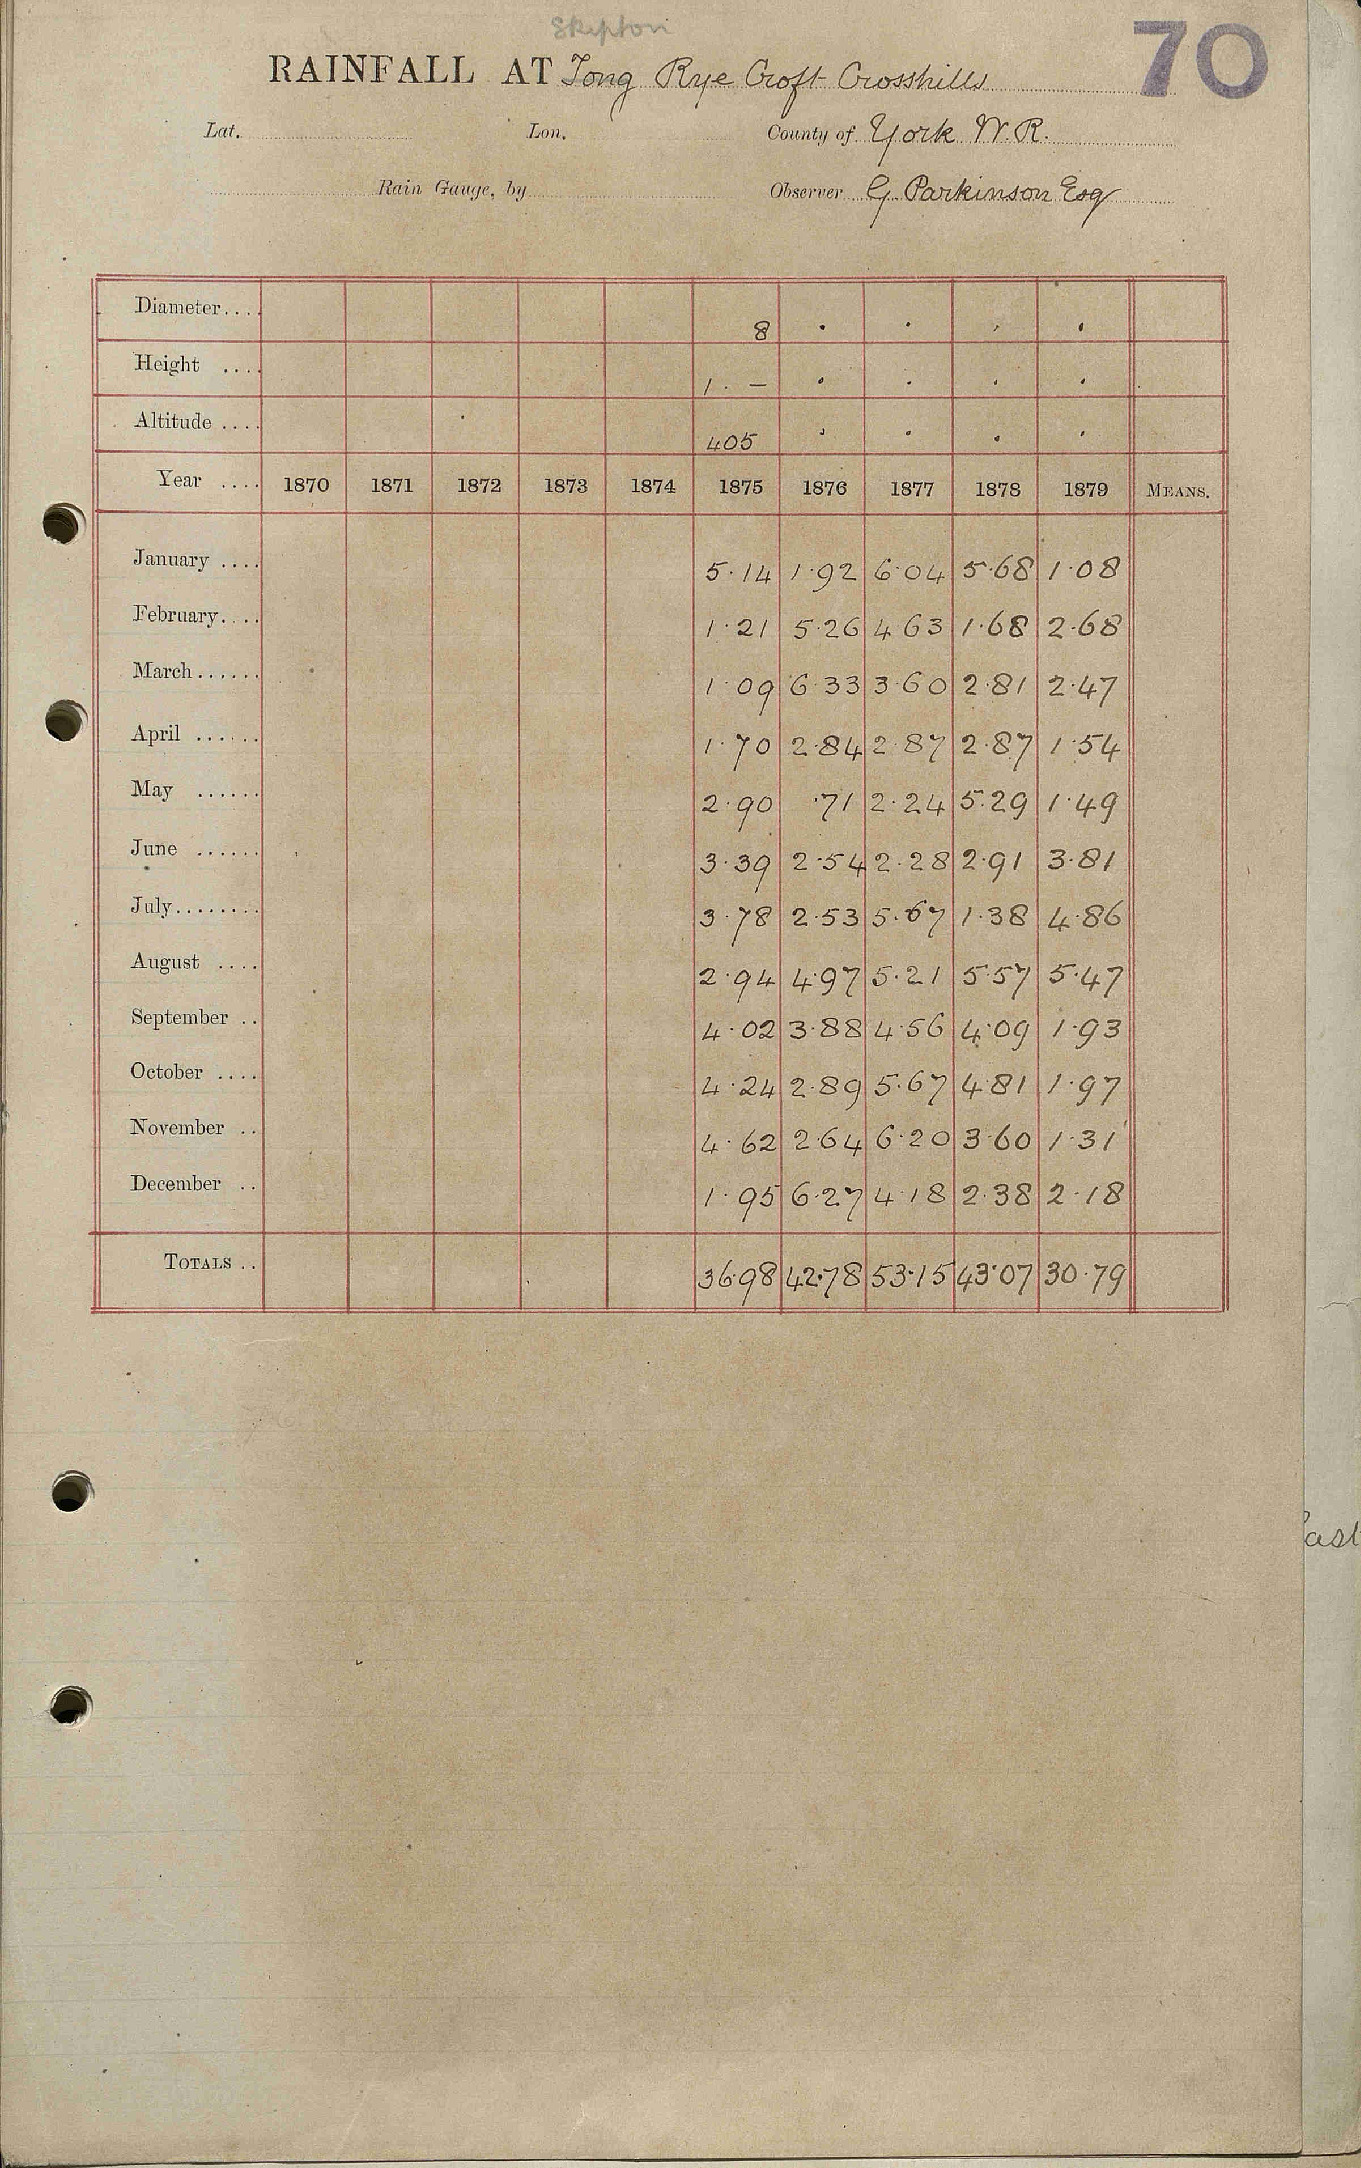 Skipton
70
RAINFALL AT Tong Rye Croft Crosshills
Lat. Lon. County of York W.R.
Rain Gauge, by Observer G. Parkinson Esq
Diameter.... 8 · · · ·
Height .... 1 · – · · · ·
Altitude .... 405 · · · ·
Year .... 1870 1871 1872 1873 1874 1875 1876 1877 1878 1879 MEANS.
January .... 5·14 1·92 6·04 5·68 1·08
February.... 1·21 5·26 4·63 1·68 2·68
March...... 1·09 6·33 3·60 2·81 2·47
April ...... 1·70 2·84 2·87 2·87 1·54
May ...... 2·90 ·71 2·24 5·29 1·49
June ...... 3·39 2·54 2·28 2·91 3·81
July........ 3·78 2·53 5·67 1·38 4·86
August .... 2·94 4·97 5·21 5·57 5·47
September .. 4·02 3·88 4·56 4·09 1·93
October .... 4·24 2·89 5·67 4·81 1·97
November .. 4·62 2·64 6·20 3·60 1·31
December .. 1·95 6·27 4·18 2·38 2·18
TOTALS .. 36·98 42·78 53·15 43·07 30·79